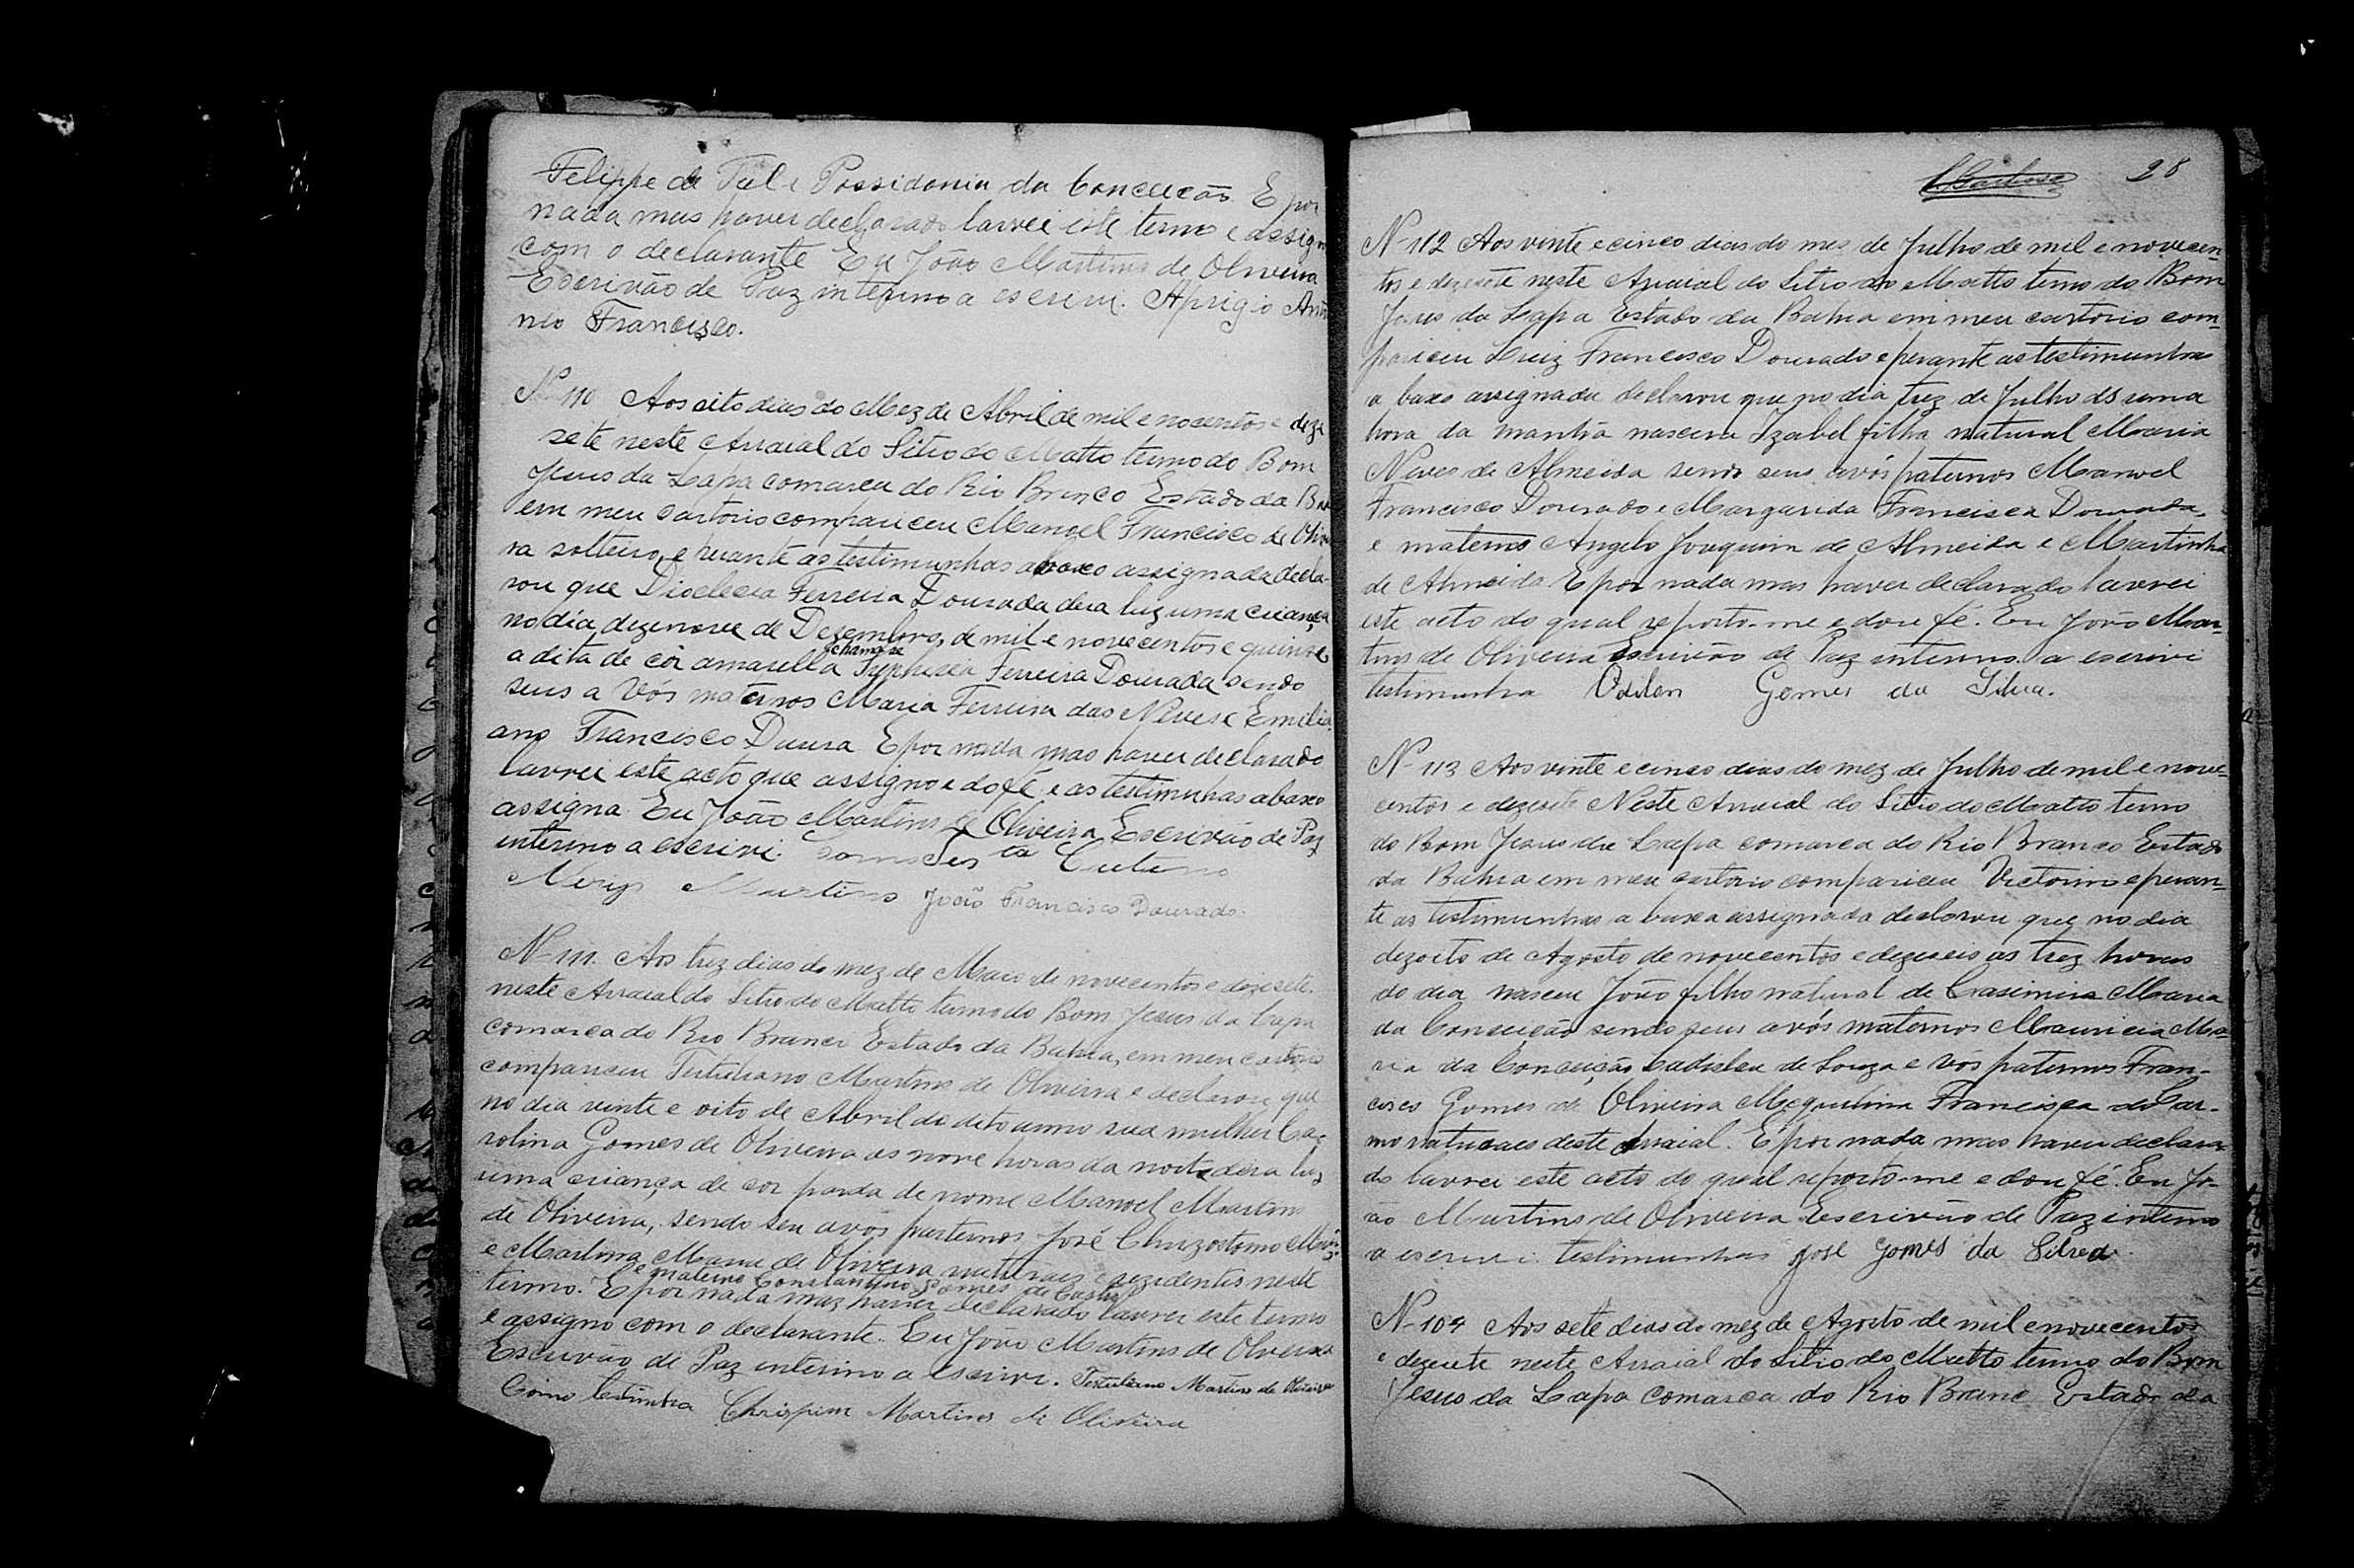 Felippe de Tal e Possidonia da Conceição. E por
nada mas haver declarado lavrei este termo e assign
com o declarante Eu João Martins de Oliveira
Escrivão de Paz interino a escrivi. Aprigio Anto
nio Francisco.
Nº 110 Aos oito dias do Mez de Abril de mil e nocentos e deze
sete neste Arraial do Sitio do Matto termo do Bom
Jesus da Lapa comarca do Rio Branco Estado da Ba
em meu cartorio compariceu Manoel Francisco de Olivei
ra solteiro, e perante as testimunhas abaxo assignada decla-
rou que Dioclecia Ferreira Dourada dera luz uma criança
no dia dezenove de Dezembro, de mil e novecentos e quinze
a dita de côr amarella chama se Ferreira Dourada sendo
seus a Vós maternos Maria Ferreira das Neves e Emilia
ano Francisco Doura E por nada mas haver declarado
lavrei este acto que assigno e do fé e as testimnhas abaxo
assigna. Eu João Martins de Oliveira Escrivão de Paz
interino a escrivi.
Martins João Francisco Dourado.
N-111. Aos trez dias do mez de Maio de novecentos e dezesete.
neste Arraial do Sitio do Matto termo do Bom Jesus da Lapa
comarca do Rio Branco Estado da Bahia, em meu cartorio
compariceu Tertuliano Martins de Oliveira e declarou que
no dia vinte e oito de Abril do dito anno sua mulher Ca-
rolina Gomes de Oliveira as nove horas da noite dera luz
uma criança de cor parda de nome Manoel Martins
de Oliveira, sendo seu avós parternos José Chrizostomo
e Martina Maria de Oliveira naturaes e rezidentes neste
e materno Constantino Gomes de Castro
termo. E por nada maz haver declarado lavrei este termo
e assigno com o declarante. Eu João Martins de Oliveira
Escrivão de Paz interino a escrivi. Tertuliano Martins de Oliveira
Como testimha Chrispim Martins de Oliveira
28
N-112 Aos vinte e cinco dias do mes de Julho de mil e novecen-
tos e dezesete neste Arraial do Sitio do Matto termo do Bom
Jesus da Lapa Estado da Bahia em meu cartorio com-
pariceu Luiz Francisco Dourado e perante as testimunhas
a baxo assignada declarou que no dia trez de Julho as uma
hora da manhã nasceu Izabel filha natural Maria
Neves de Almeida sendo seus avós paternos Manoel
Francisco Dourado e Margarida Francisca Dourada,
e maternos Angelo Joaquim de Almeida e Martinha
de Almeida E por nada mas haver declarado lavrei
este acto do qual reporto-me e dou fé. Eu João Mar-
tins de Oliveira Escrivão de Paz interino a escrivi
testimunha Odilon Gomes da Silva.
N-113 Aos vinte e cinco dias do mez de Julho de mil e nove-
centos e dezesete Neste Arraial do Sitio do Matto termo
do Bom Jesus da Lapa comarca do Rio Branco Estado
da Bahia em meu cartorio compariceu Victorino e peran-
te as testimunhas a baxa assignada declarou que no dia
dezoito de Agosto de novecentos e dezeseis as trez horas
do dia nasceu João filho natural de Casimira Maria
da Conceição sendo seus avós maternos Mauricia Ma-
ria da Conceição Ladislau de Souza e Vós paternos Fran-
cisco Gomes de Oliveira Mequilina Francisca do Car-
mo naturaes deste Arraial. E por nada mas haver declara-
do lavrei este acto do qual reporto-me e dou fé. Eu Jo-
ão Martins de Oliveira Escrivão de Paz interino
a escrivi. testimunhas José Gomes da Silva
N-104 Aos sete dias do mez de Agosto de mil e novecentos
e dezesete neste Arraial do Sitio do Matto termo do Bom
Jesus da Lapa comarca do Rio Branco Estado da